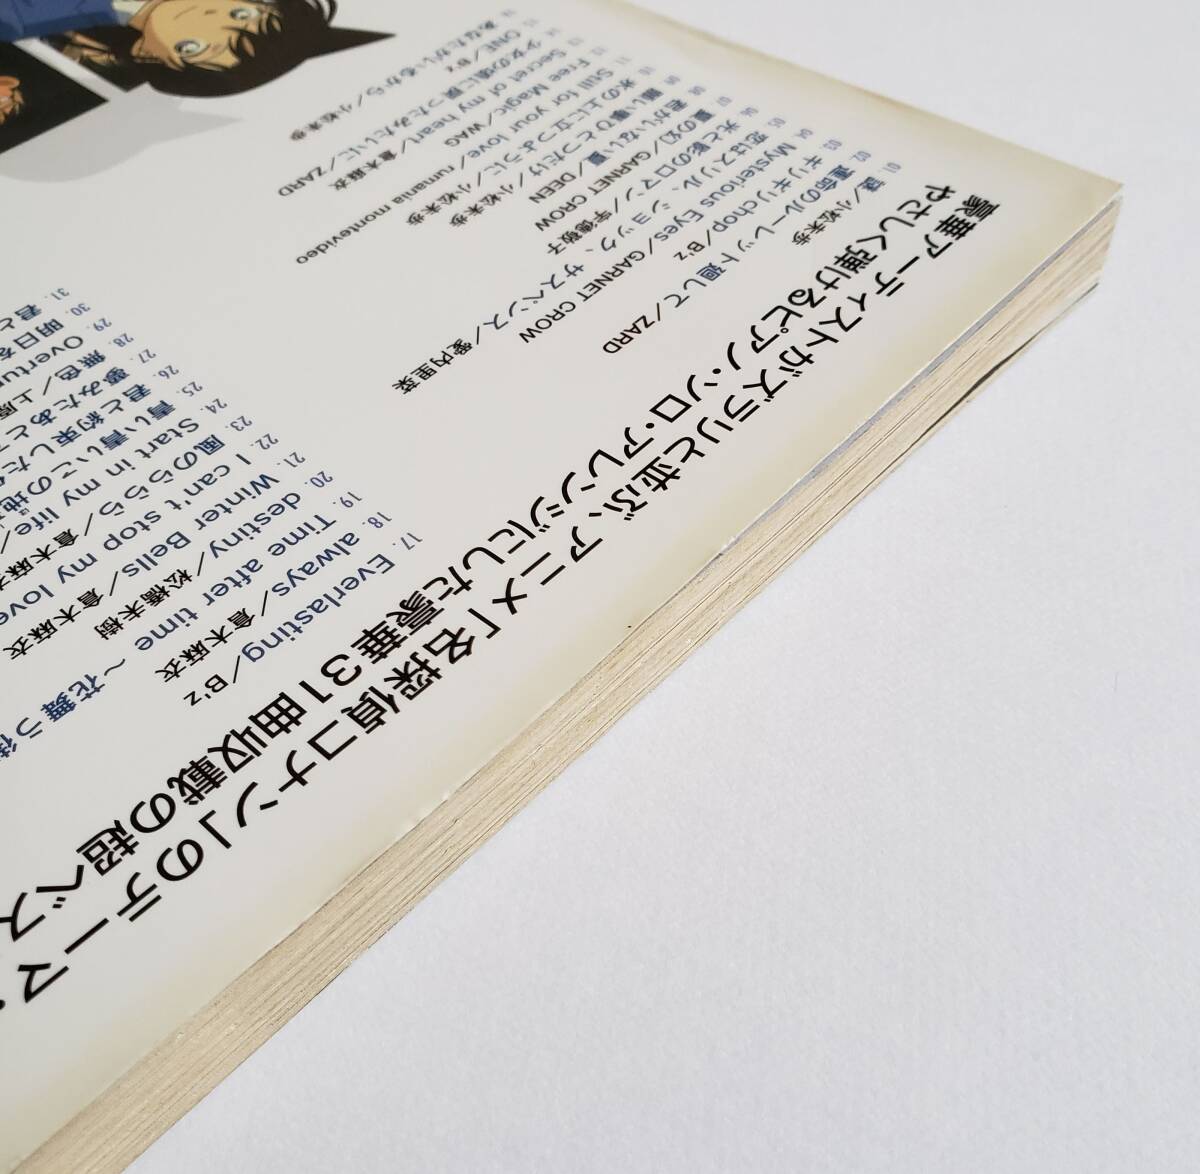 豪華アーティストがズラリと並ぶ、アニメ「名探偵コナン」のテーマ
やさしく弾けるピアノ・ソロ・アレンジにした豪華31曲収載の超ベス
01. 謎／小松未歩
02. 運命のルーレット廻して／ZARD
03. ギリギリchop／B'z
04. Mysterious Eyes／GARNET CROW
05. 恋はスリル、ショック、サスペンス／愛内里菜
06. 光と影のロマン／宇徳敬子
07. 夏の幻／GARNET CROW
08. 君がいない夏／DEEN
09. 願い事ひとつだけ／小松未歩
10. 氷の上に立つように／小松未歩
11. Still for your love／rumania montevideo
12. Free Magic／WAG
13. Secret of my heart／倉木麻衣
14. 少女の頃に戻ったみたいに／ZARD
15. ONE／B'z
16. あなたがいるから／小松未歩
17. Everlasting／B'z
18. always／倉木麻衣
19. Time after time ～花舞う街
20. destiny／松橋未樹
21. Winter Bells／倉木麻衣
22. I can't stop my love
23. 風のららら／倉木麻衣
24. Start in my life／
25. 青い青いこの地
26. 君と約束した
27. 夢みたあとで
28. 無色／上原
29. Overtur
30. 明日を
31. 君と